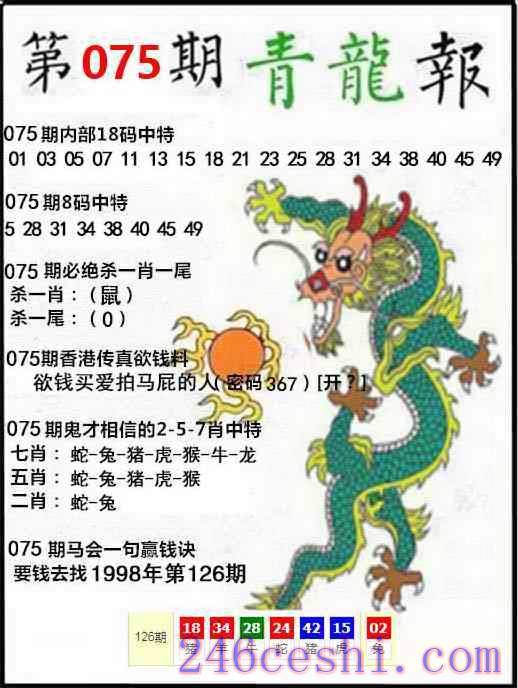 第075期青龍報
075期内部18码中特
01 03 05 07 11 13 15 18 21 23 25 28 31 34 38 40 45 49
075期8码中特
5 28 31 34 38 40 45 49
075期必绝杀一肖一尾
杀一肖：（鼠）
杀一尾：（0）
075期香港传真欲钱料
欲钱买爱拍马屁的人(密码367)[开?]
075期鬼才相信的2-5-7肖中特
七肖：蛇-兔-猪-虎-猴-牛-龙
五肖：蛇-兔-猪-虎-猴
二肖：蛇-兔
075期马会一句赢钱诀
要钱去找1998年第126期
126期 18 34 28 24 42 15 02
猪 羊 牛 蛇 猪 虎 兔
246ceshi.com